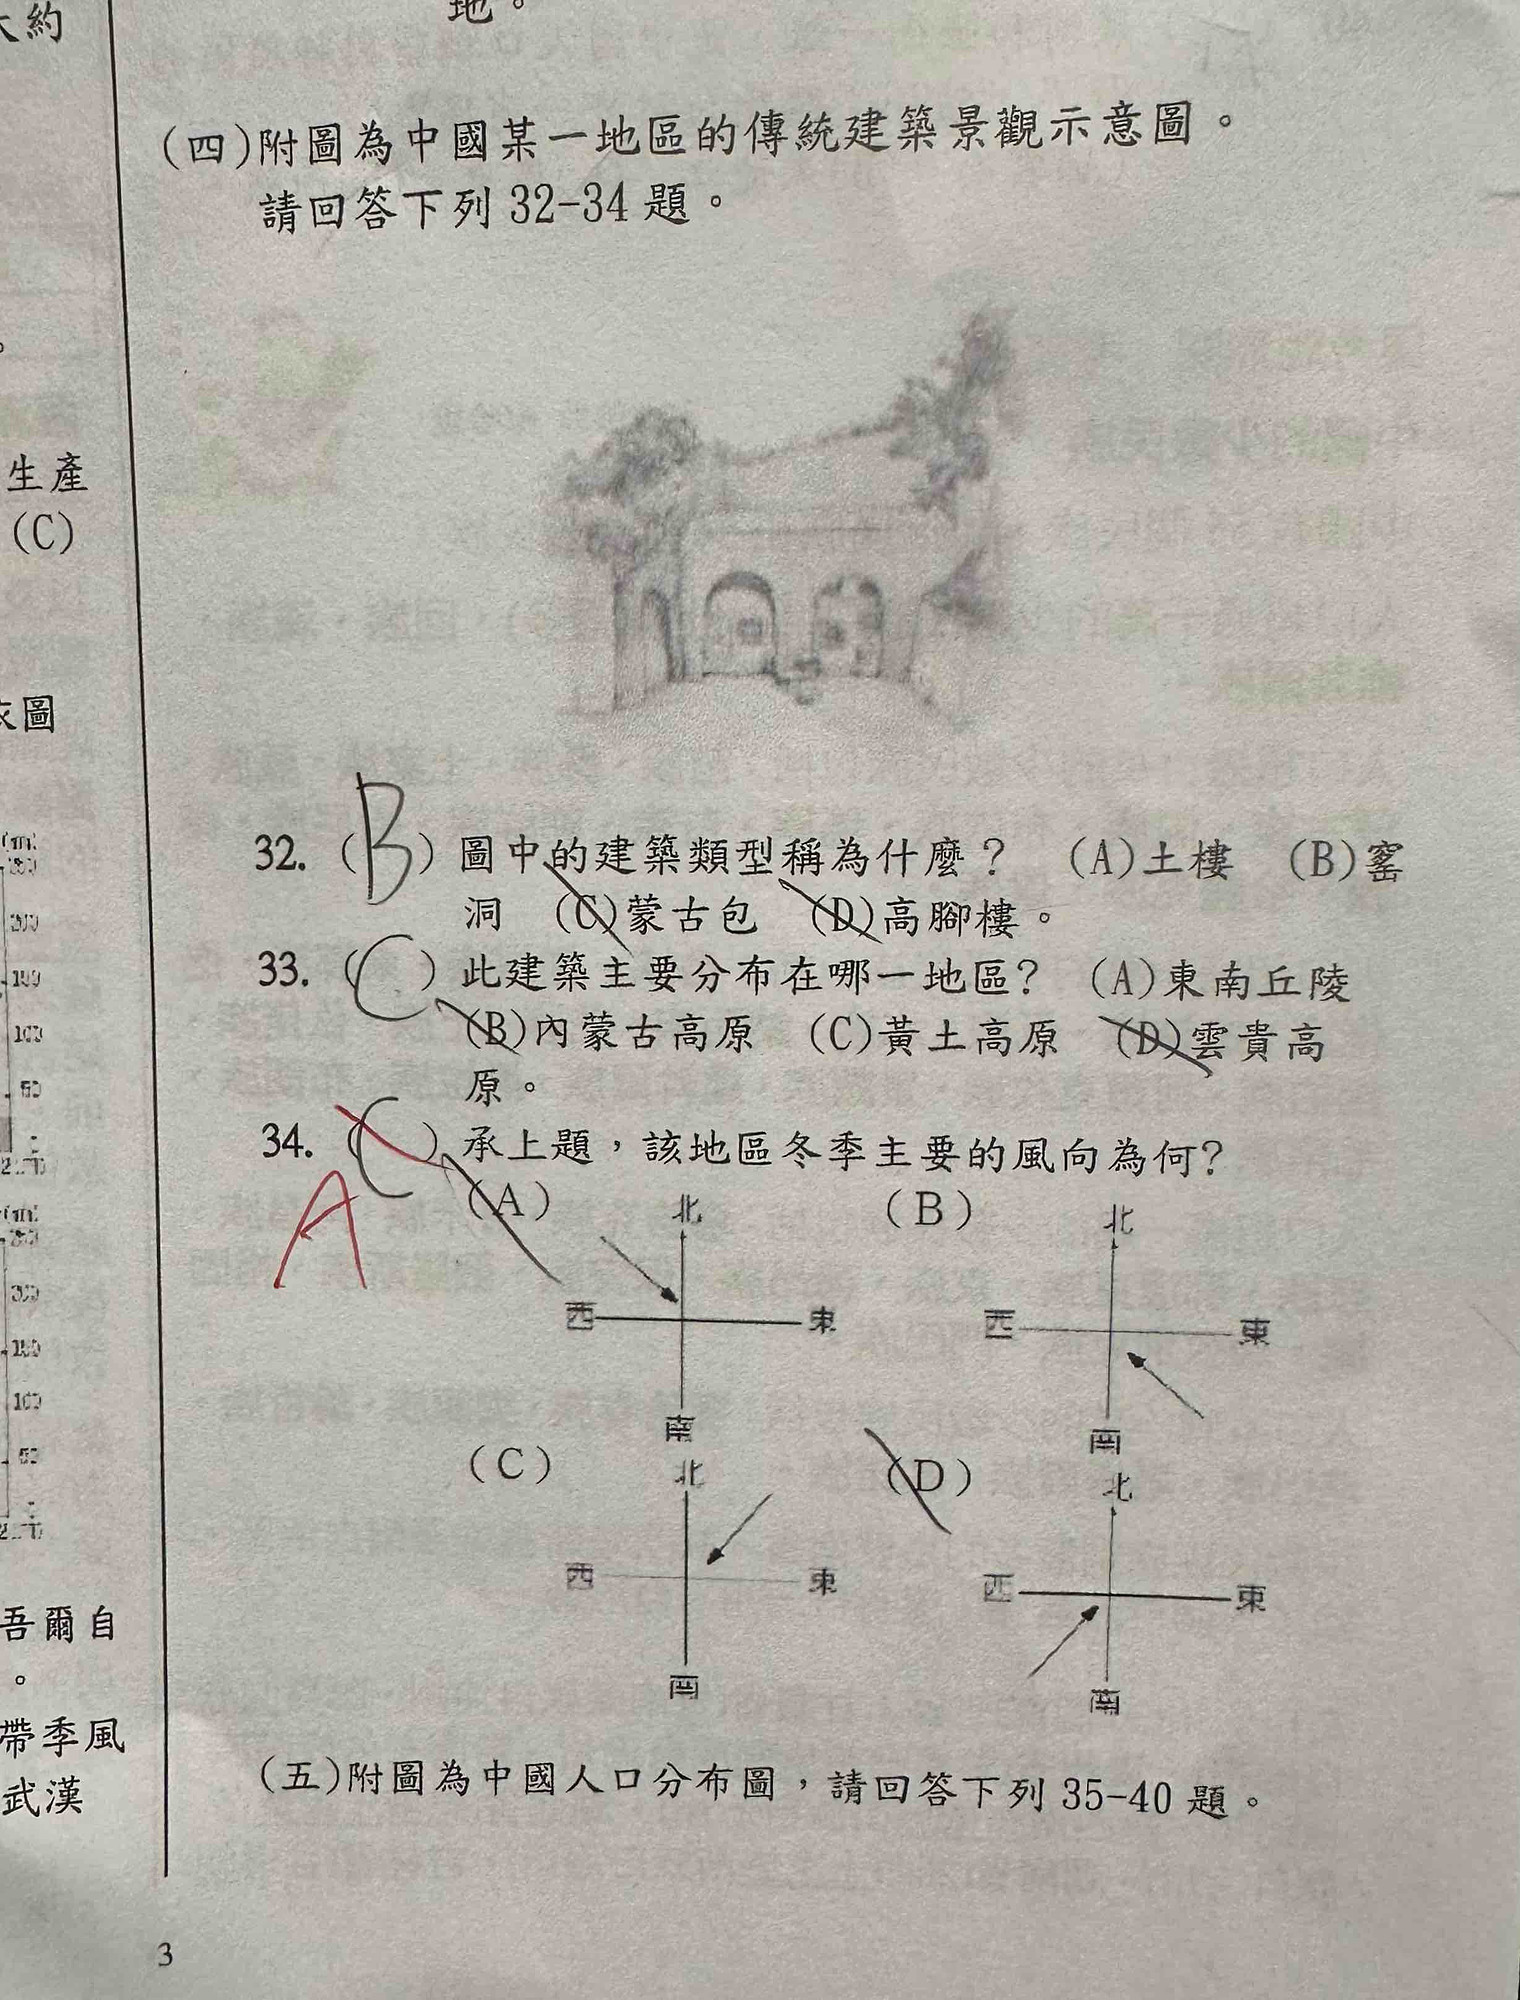 約
生產
(C)
圖
200
150
100
50
200
150
100
50
吾爾自
。
帶季風
武漢
地。
(四)附圖為中國某一地區的傳統建築景觀示意圖。
請回答下列 32-34 題。
32. (B) 圖中的建築類型稱為什麼？ (A)土樓 (B)窰
洞 (C)蒙古包 (D)高腳樓。
33. (C) 此建築主要分布在哪一地區？ (A)東南丘陵
(B)內蒙古高原 (C)黃土高原 (D)雲貴高
原。
34. (C) 承上題，該地區冬季主要的風向為何？
A
(A) (B)
北 北
西 東 西 東
南 南
(C) (D)
北 北
西 東 西 東
南 南
(五)附圖為中國人口分布圖，請回答下列 35-40 題。
3